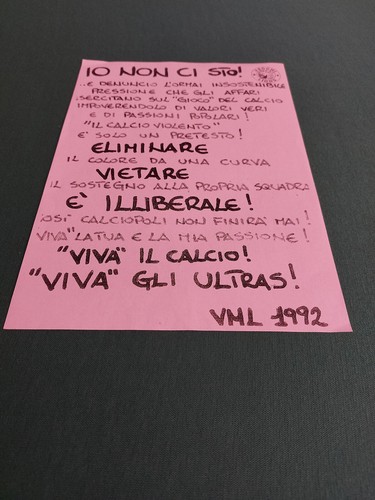 IO NON CI STO!
..E DENUNCIO L'ORMAI INSOSTENIBILE
PRESSIONE CHE GLI AFFARI
ESERCITANO SUL "GIOCO" DEL CALCIO
IMPOVERENDOLO DI VALORI VERI
E DI PASSIONI POPOLARI!
"IL CALCIO VIOLENTO"
E' SOLO UN PRETESTO!
ELIMINARE
IL COLORE DA UNA CURVA
VIETARE
IL SOSTEGNO ALLA PROPRIA SQUADRA
E' ILLIBERALE!
COSI' CALCIOPOLI NON FINIRA' MAI!
"VIVA" LA TUA E LA MIA PASSIONE!
"VIVA" IL CALCIO!
"VIVA" GLI ULTRAS!
VML 1992